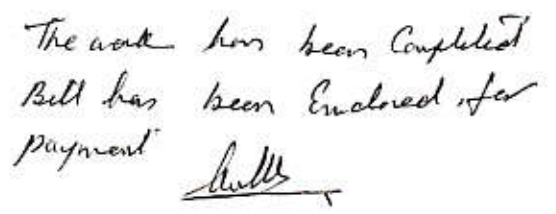 The work has been Completed
Bill has been Enclosed, for
payment